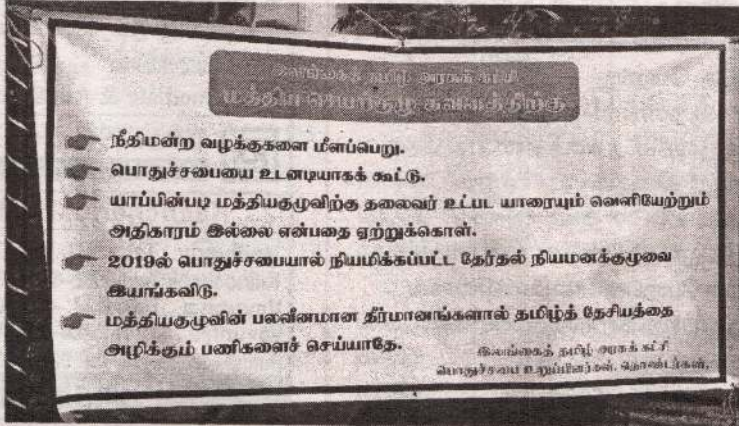 இலங்கைத் தமிழ் அரசுக் கட்சி
மத்திய செயற்குழு கவனத்திற்கு
நீதிமன்ற வழக்குகளை மீளப்பெறு.
பொதுச்சபையை உடனடியாகக் கூட்டு.
யாப்பின்படி மத்தியகுழுவிற்கு தலைவர் உட்பட யாரையும் வெளியேற்றும்
அதிகாரம் இல்லை என்பதை ஏற்றுக்கொள்.
2019ல் பொதுச்சபையால் நியமிக்கப்பட்ட தேர்தல் நியமனக்குழுவை
இயங்கவிடு.
மத்தியகுழுவின் பலவீனமான தீர்மானங்களால் தமிழ்த் தேசியத்தை
அழிக்கும் பணிகளைச் செய்யாதே.
இலங்கைத் தமிழ் அரசுக் கட்சி
பொதுச்சபை உறுப்பினர்கள், தொண்டர்கள்.